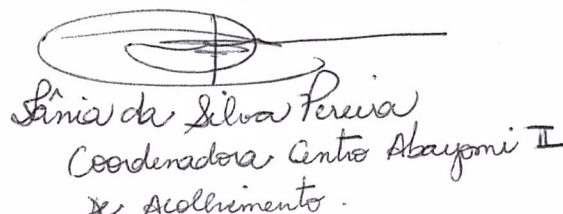 Sânia da Silva Pereira
Coordenadora Centro Abayomi II
de Acolhimento.